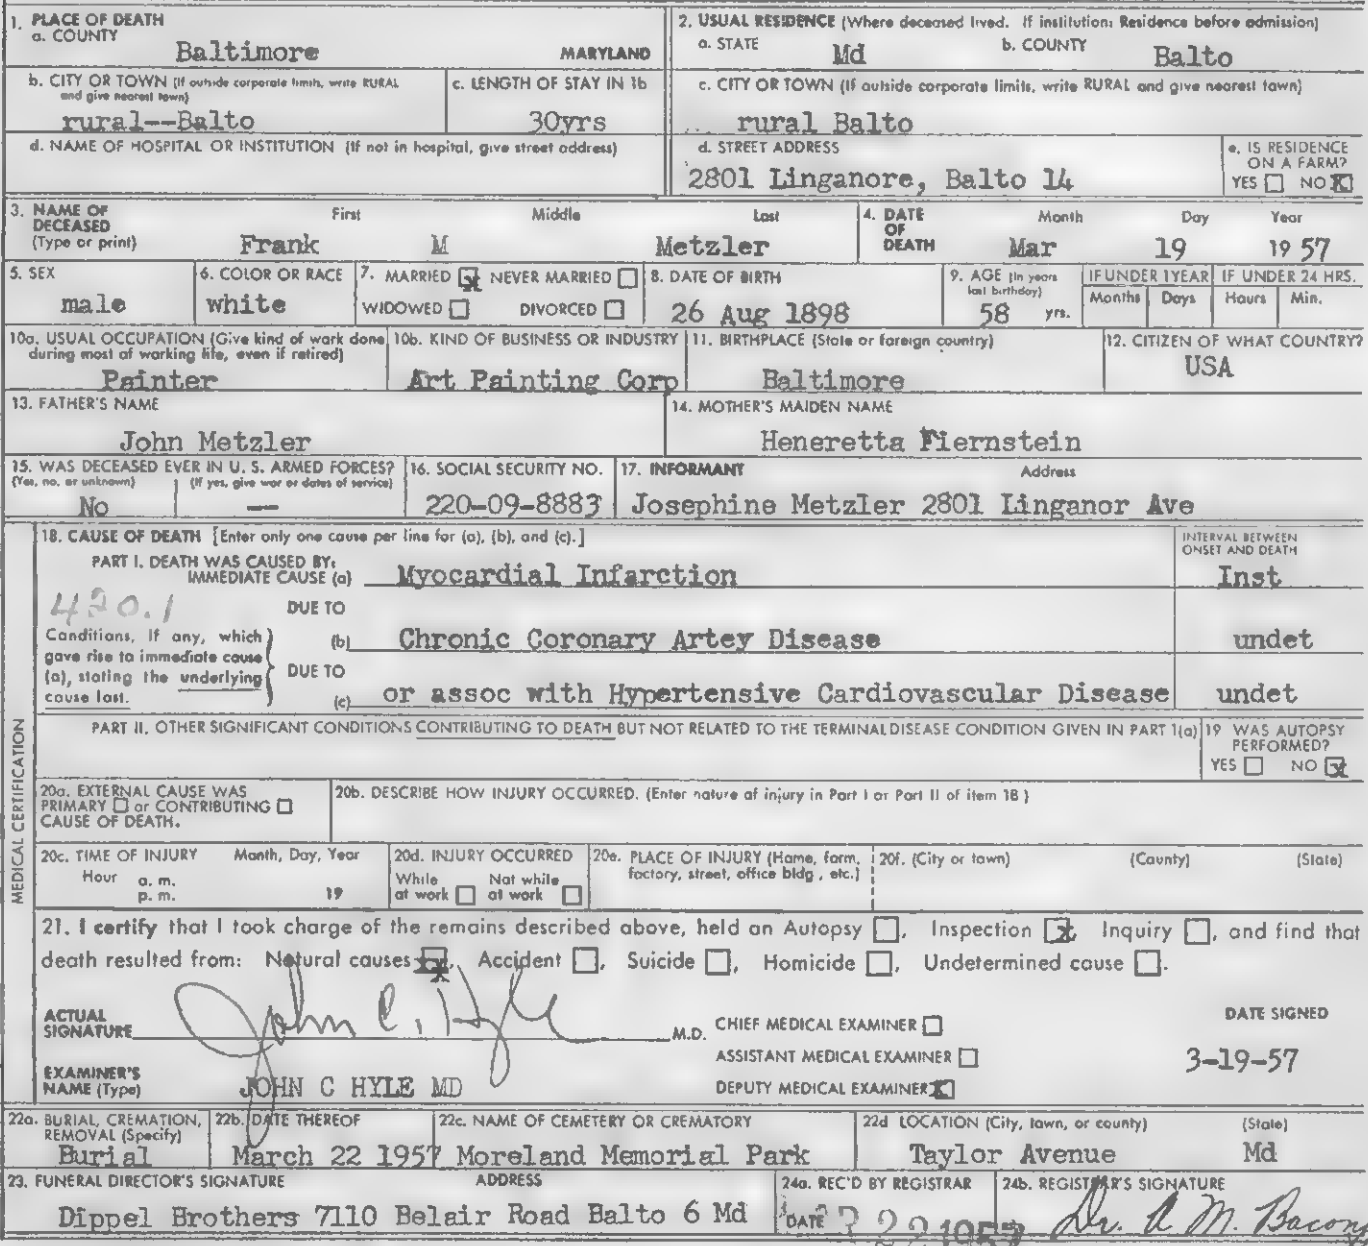 1. PLACE OF DEATH
a. COUNTY
Baltimore MARYLAND
2. USUAL RESIDENCE (Where deceased lived. If institution: Residence before admission)
a. STATE Md b. COUNTY Balto
b. CITY OR TOWN (If outside corporate limits, write RURAL
and give nearest town)
rural--Balto
c. LENGTH OF STAY IN 1b
30yrs
c. CITY OR TOWN (If outside corporate limits, write RURAL and give nearest town)
rural Balto
d. NAME OF HOSPITAL OR INSTITUTION (If not in hospital, give street address)
d. STREET ADDRESS
2801 Linganore, Balto 14
e. IS RESIDENCE
ON A FARM?
YES NO X
3. NAME OF
DECEASED
(Type or print)
First Middle Last
Frank M Metzler
4. DATE
OF
DEATH
Month Day Year
Mar 19 19 57
5. SEX
male
6. COLOR OR RACE
white
7. MARRIED X NEVER MARRIED
WIDOWED DIVORCED
8. DATE OF BIRTH
26 Aug 1898
9. AGE (In years
last birthday)
58 yrs.
IF UNDER 1 YEAR
Months Days
IF UNDER 24 HRS.
Hours Min.
10a. USUAL OCCUPATION (Give kind of work done
during most of working life, even if retired)
Painter
10b. KIND OF BUSINESS OR INDUSTRY
Art Painting Corp
11. BIRTHPLACE (State or foreign country)
Baltimore
12. CITIZEN OF WHAT COUNTRY?
USA
13. FATHER'S NAME
John Metzler
14. MOTHER'S MAIDEN NAME
Heneretta Fiernstein
15. WAS DECEASED EVER IN U. S. ARMED FORCES?
(Yes, no, or unknown) (If yes, give war or dates of service)
No —
16. SOCIAL SECURITY NO.
220-09-8883
17. INFORMANT Address
Josephine Metzler 2801 Linganor Ave
MEDICAL CERTIFICATION
18. CAUSE OF DEATH [Enter only one cause per line for (a), (b), and (c).]
INTERVAL BETWEEN
ONSET AND DEATH
PART I. DEATH WAS CAUSED BY:
IMMEDIATE CAUSE (a) Myocardial Infarction Inst
420.1
DUE TO
Conditions, if any, which
gave rise to immediate cause
(a), stating the underlying
cause last.
(b) Chronic Coronary Artey Disease undet
DUE TO
(c) or assoc with Hypertensive Cardiovascular Disease undet
PART II. OTHER SIGNIFICANT CONDITIONS CONTRIBUTING TO DEATH BUT NOT RELATED TO THE TERMINAL DISEASE CONDITION GIVEN IN PART 1(a)
19 WAS AUTOPSY
PERFORMED?
YES NO X
20a. EXTERNAL CAUSE WAS
PRIMARY or CONTRIBUTING
CAUSE OF DEATH.
20b. DESCRIBE HOW INJURY OCCURRED. (Enter nature of injury in Part I or Part II of item 18)
20c. TIME OF INJURY Month, Day, Year
Hour a. m.
p. m. 19
20d. INJURY OCCURRED
While at work Not while at work
20e. PLACE OF INJURY (Home, farm,
factory, street, office bldg., etc.)
20f. (City or town) (County) (State)
21. I certify that I took charge of the remains described above, held an Autopsy , Inspection X, Inquiry , and find that
death resulted from: Natural causes X, Accident , Suicide , Homicide , Undetermined cause .
ACTUAL
SIGNATURE John C. Hyle M.D.
CHIEF MEDICAL EXAMINER
ASSISTANT MEDICAL EXAMINER
DEPUTY MEDICAL EXAMINER X
DATE SIGNED
3-19-57
EXAMINER'S
NAME (Type) JOHN C HYLE MD
22a. BURIAL, CREMATION,
REMOVAL (Specify)
Burial
22b. DATE THEREOF
March 22 1957
22c. NAME OF CEMETERY OR CREMATORY
Moreland Memorial Park
22d LOCATION (City, town, or county) (State)
Taylor Avenue Md
23. FUNERAL DIRECTOR'S SIGNATURE ADDRESS
Dippel Brothers 7110 Belair Road Balto 6 Md
24a. REC'D BY REGISTRAR
DATE 22 1957
24b. REGISTRAR'S SIGNATURE
Dr. A. M. Bacon